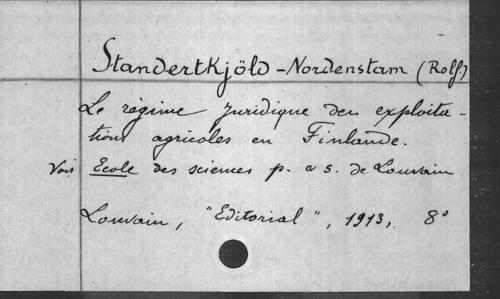 Standertkjöld-Nordenstam (Rolf.)
Le régime juridique des exploita-
tions agricoles en Finlande.
Voir Ecole des sciences p. & s. de Louvain
Louvain, "Editorial", 1913, 8°